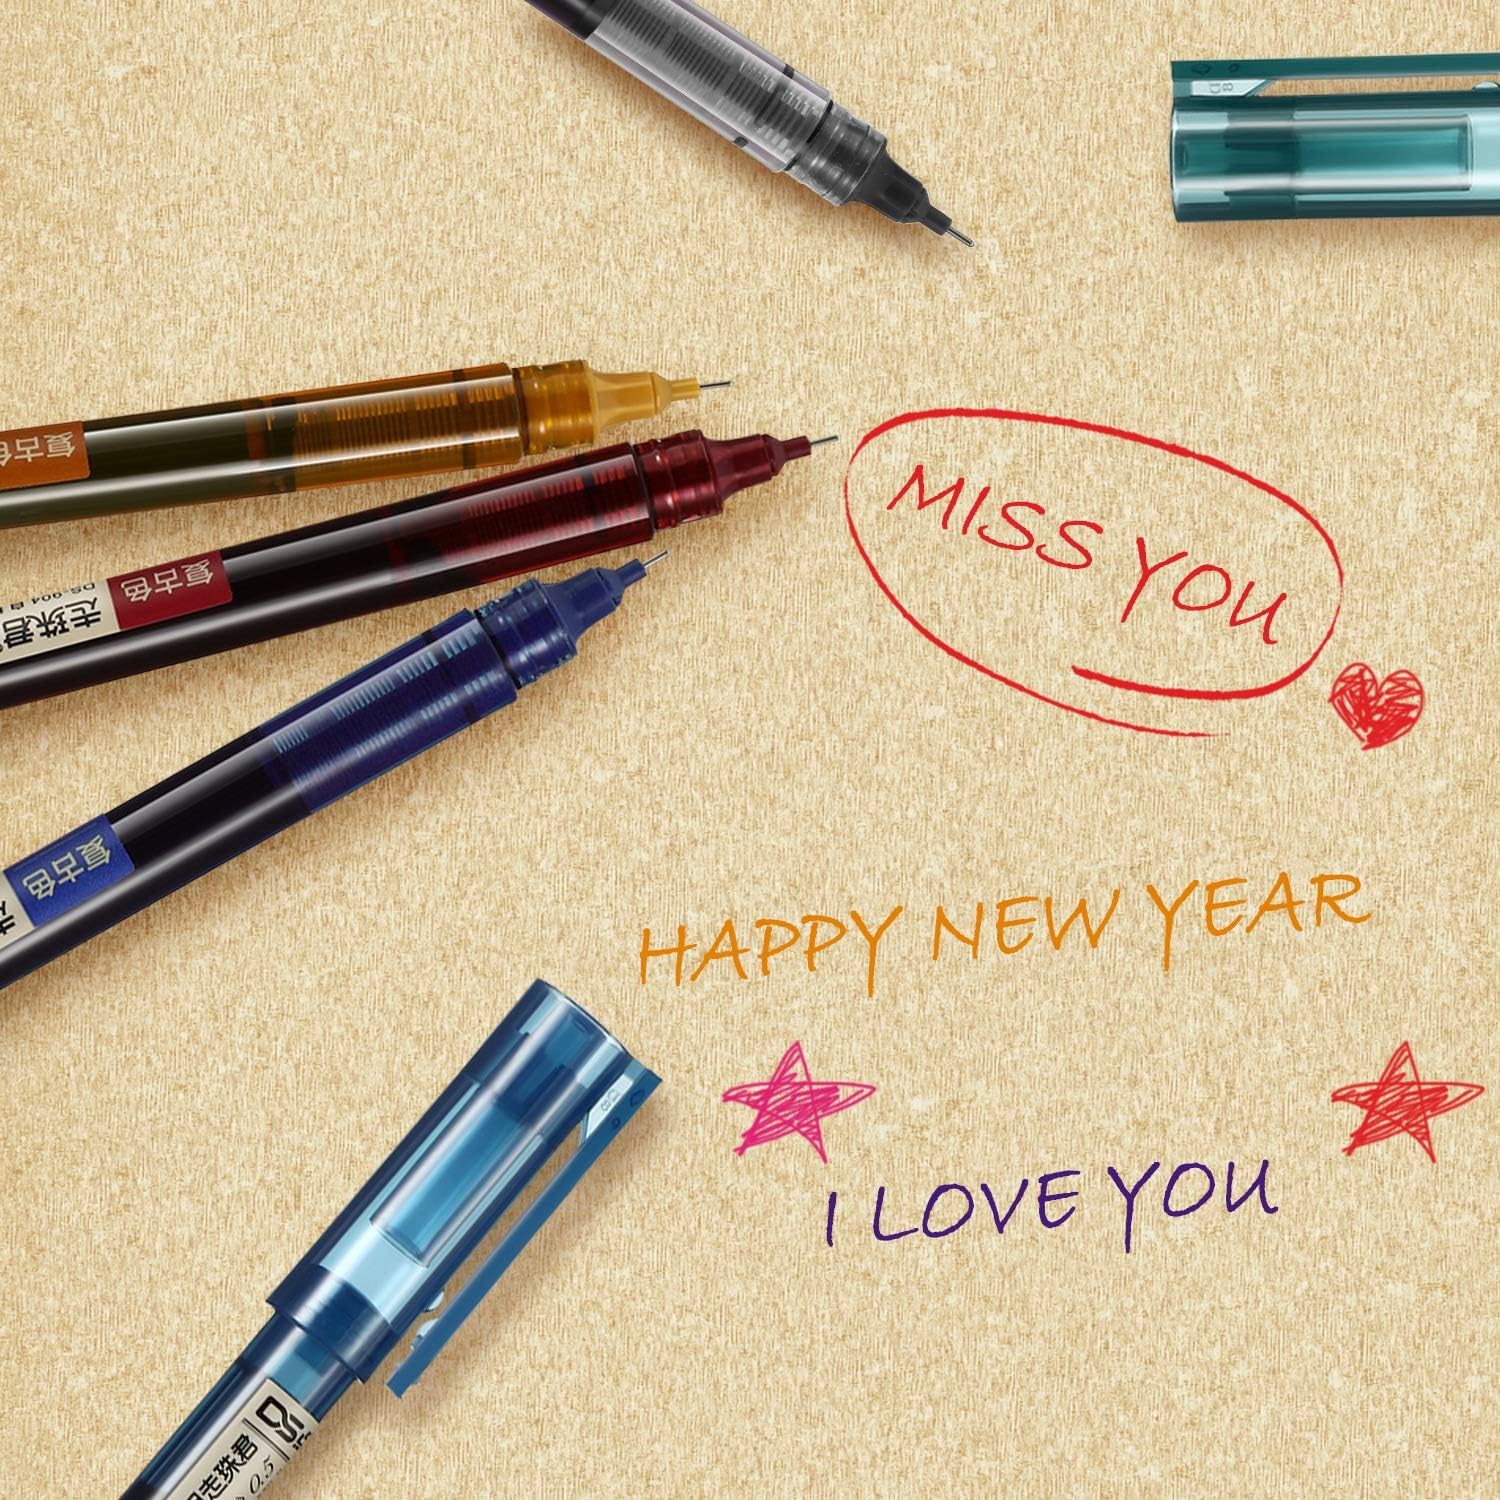 复古色
复古色
走珠君
DS-904
MISS YOU
复古色
HAPPY NEW YEAR
I LOVE YOU
走珠君
0.5